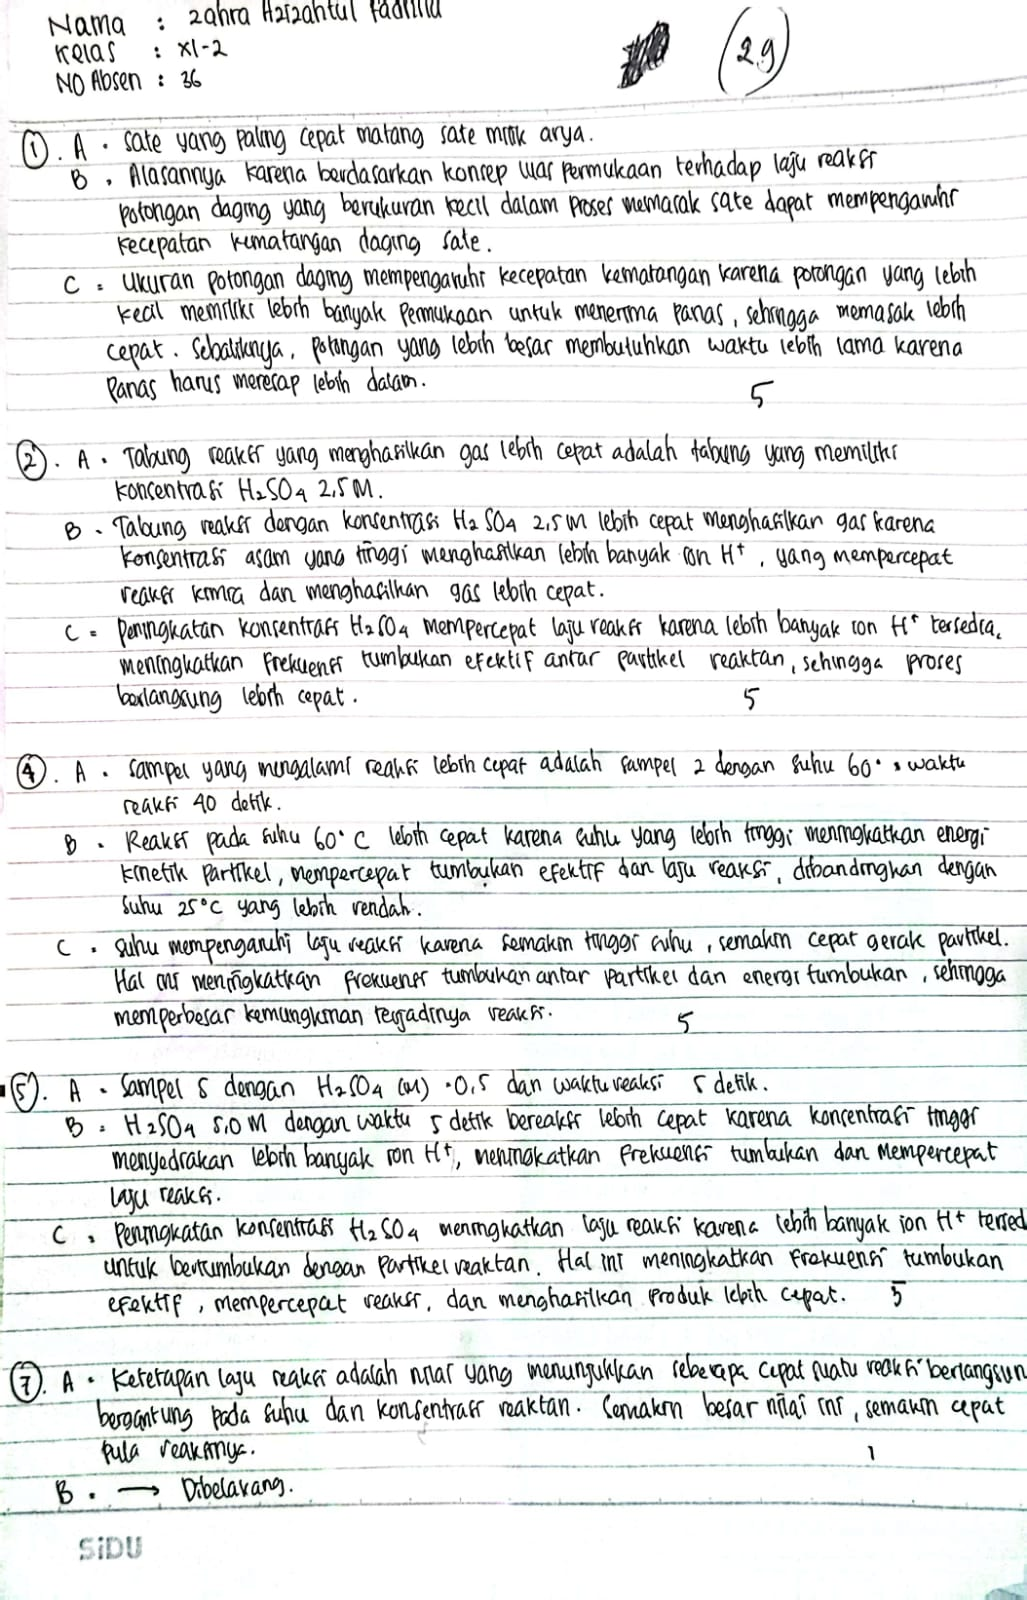 Nama : Zahra Azizahtul Fadhilla
Kelas : XI-2
NO Absen : 36
29
1. A. Sate yang paling cepat matang sate milik arya.
B. Alasannya karena berdasarkan konsep luas permukaan terhadap laju reaksi
potongan daging yang berukuran kecil dalam proses memasak sate dapat mempengaruhi
kecepatan kematangan daging sate.
C. Ukuran potongan daging mempengaruhi kecepatan kematangan karena potongan yang lebih
kecil memiliki lebih banyak permukaan untuk menerima panas, sehingga memasak lebih
cepat. Sebaliknya, potongan yang lebih besar membutuhkan waktu lebih lama karena
panas harus meresap lebih dalam.
5
2. A. Tabung reaksi yang menghasilkan gas lebih cepat adalah tabung yang memiliki
konsentrasi H₂SO₄ 2,5 M.
B. Tabung reaksi dengan konsentrasi H₂SO₄ 2,5 M lebih cepat menghasilkan gas karena
konsentrasi asam yang tinggi menghasilkan lebih banyak ion H⁺, yang mempercepat
reaksi kimia dan menghasilkan gas lebih cepat.
C. Peningkatan konsentrasi H₂SO₄ mempercepat laju reaksi karena lebih banyak ion H⁺ tersedia,
meningkatkan frekuensi tumbukan efektif antar partikel reaktan, sehingga proses
berlangsung lebih cepat.
5
4. A. Sampel yang mengalami reaksi lebih cepat adalah sampel 2 dengan suhu 60°, waktu
reaksi 40 detik.
B. Reaksi pada suhu 60°C lebih cepat karena suhu yang lebih tinggi meningkatkan energi
kinetik partikel, mempercepat tumbukan efektif dan laju reaksi, dibandingkan dengan
suhu 25°C yang lebih rendah.
C. Suhu mempengaruhi laju reaksi karena semakin tinggi suhu, semakin cepat gerak partikel.
Hal ini meningkatkan frekuensi tumbukan antar partikel dan energi tumbukan, sehingga
memperbesar kemungkinan terjadinya reaksi.
5
5. A. Sampel 5 dengan H₂SO₄ (M) . 0,5 dan waktu reaksi 5 detik.
B. H₂SO₄ 5,0 M dengan waktu 5 detik bereaksi lebih cepat karena konsentrasi tinggi
menyediakan lebih banyak ion H⁺, meningkatkan frekuensi tumbukan dan mempercepat
laju reaksi.
C. Peningkatan konsentrasi H₂SO₄ meningkatkan laju reaksi karena lebih banyak ion H⁺ tersed
untuk bertumbukan dengan partikel reaktan. Hal ini meningkatkan frekuensi tumbukan
efektif, mempercepat reaksi, dan menghasilkan produk lebih cepat.
5
7. A. Ketetapan laju reaksi adalah nilai yang menunjukkan seberapa cepat suatu reaksi berlangsun
bergantung pada suhu dan konsentrasi reaktan. Semakin besar nilai ini, semakin cepat
pula reaksinya.
1
B. → Dibelakang.
SiDU